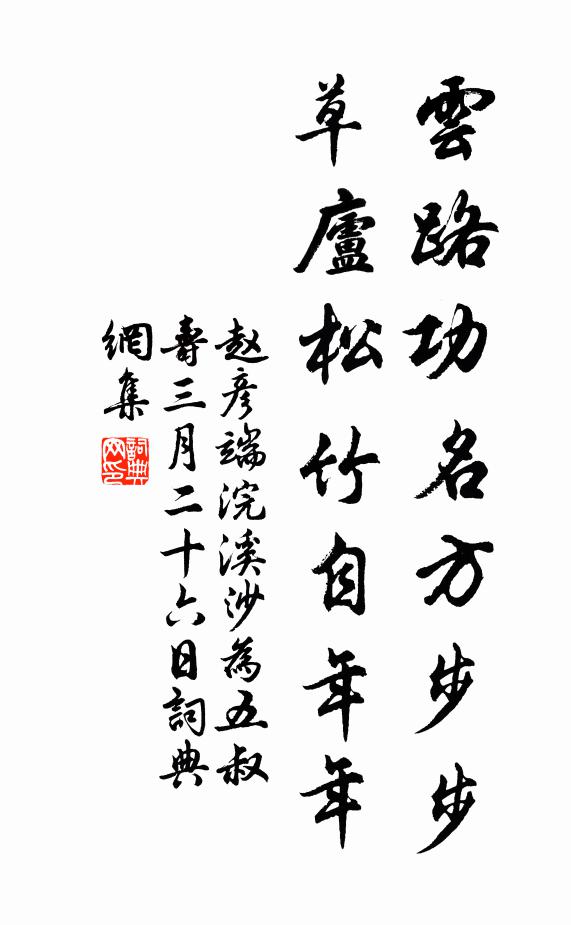 雲路功名方步步
草廬松竹自年年
赵彦端浣溪沙為五叔
壽三月二十六日詞典
網集
詞典
网印